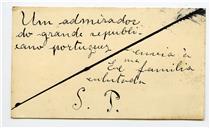 Um admirador
do grande republi-
cano portuguez
envia á
Ex.ma familia
enlutada
S. P.